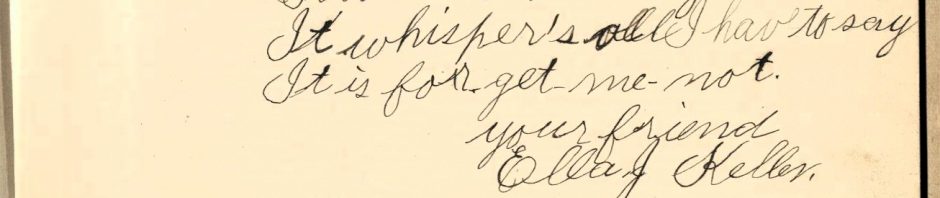 It whisper's all I have to say
It is for-get-me-not.
your friend
Ella J Keller.